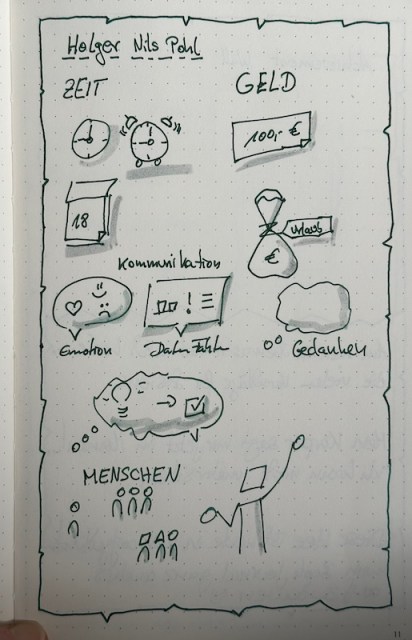 Holger Nils Pohl
ZEIT
GELD
100,- €
18
Urlaub
€
Kommunikation
Emotion
Daten Fakten
Gedanken
MENSCHEN
11